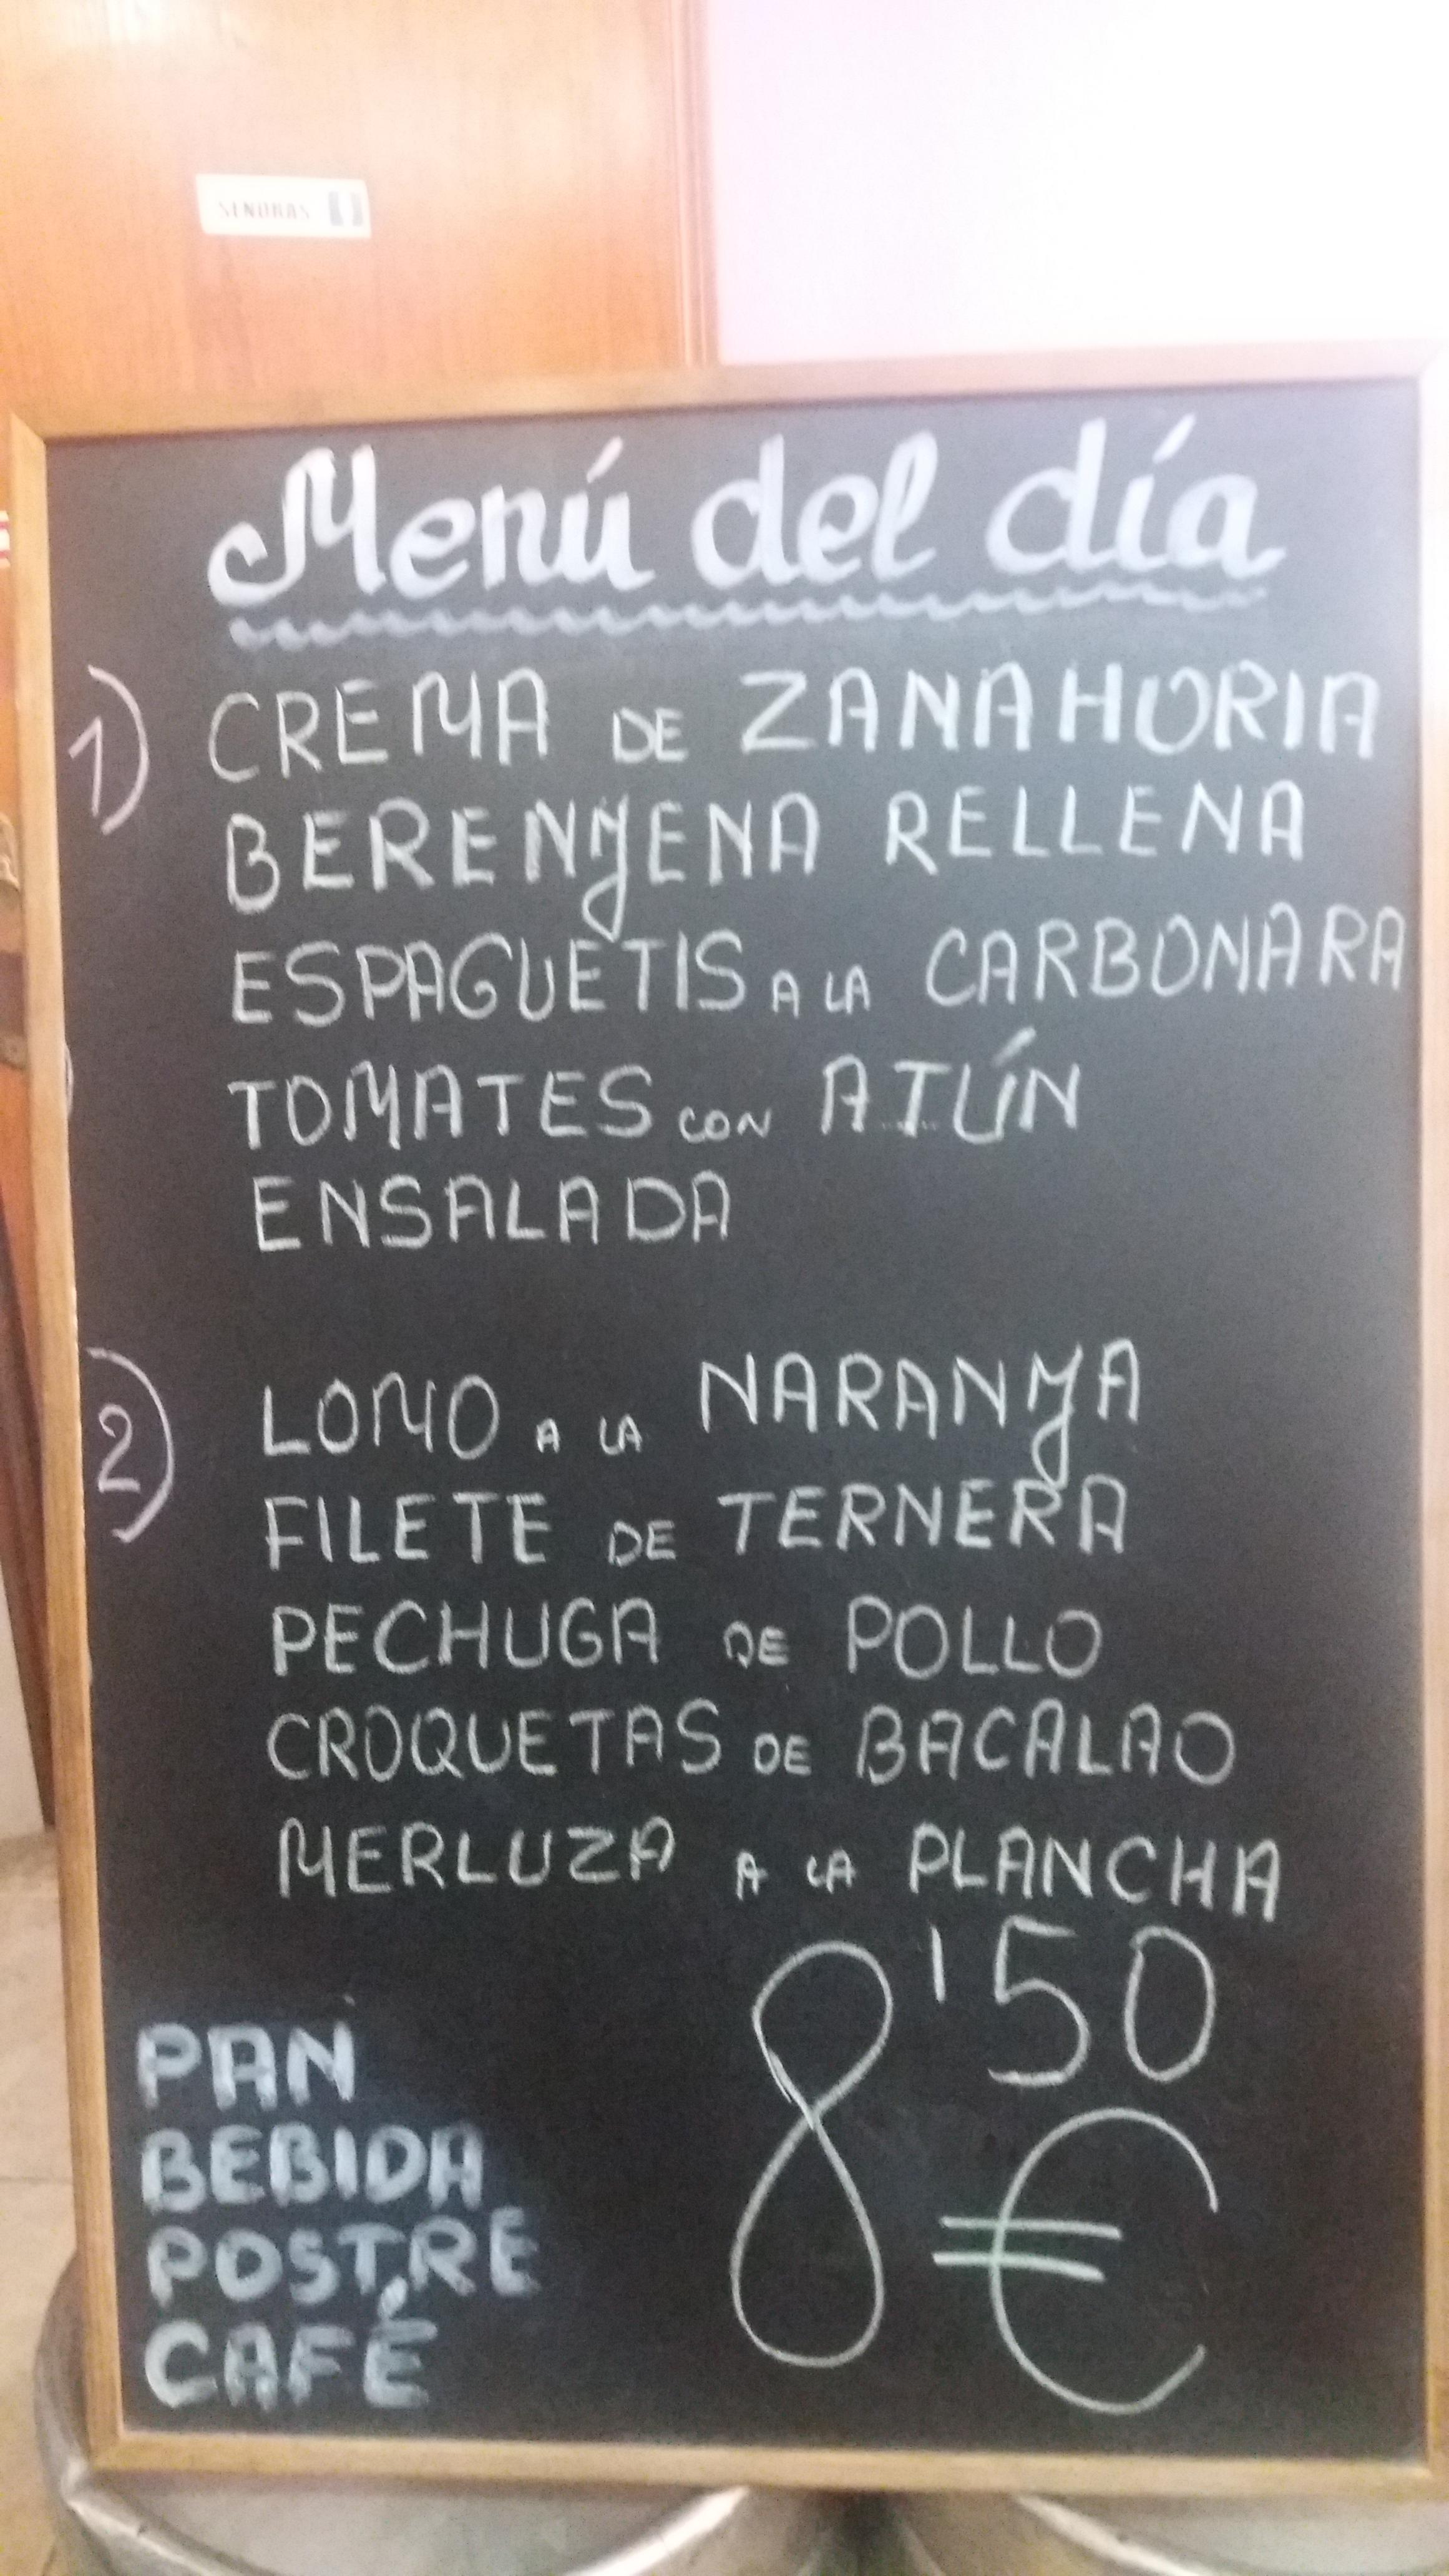 SEÑORAS
Menú del día
1) CREMA DE ZANAHORIA
BERENJENA RELLENA
ESPAGUETIS A LA CARBONARA
TOMATES CON ATÚN
ENSALADA
2) LOMO A LA NARANJA
FILETE DE TERNERA
PECHUGA DE POLLO
CROQUETAS DE BACALAO
MERLUZA A LA PLANCHA
8'50
€
PAN
BEBIDA
POSTRE
CAFÉ